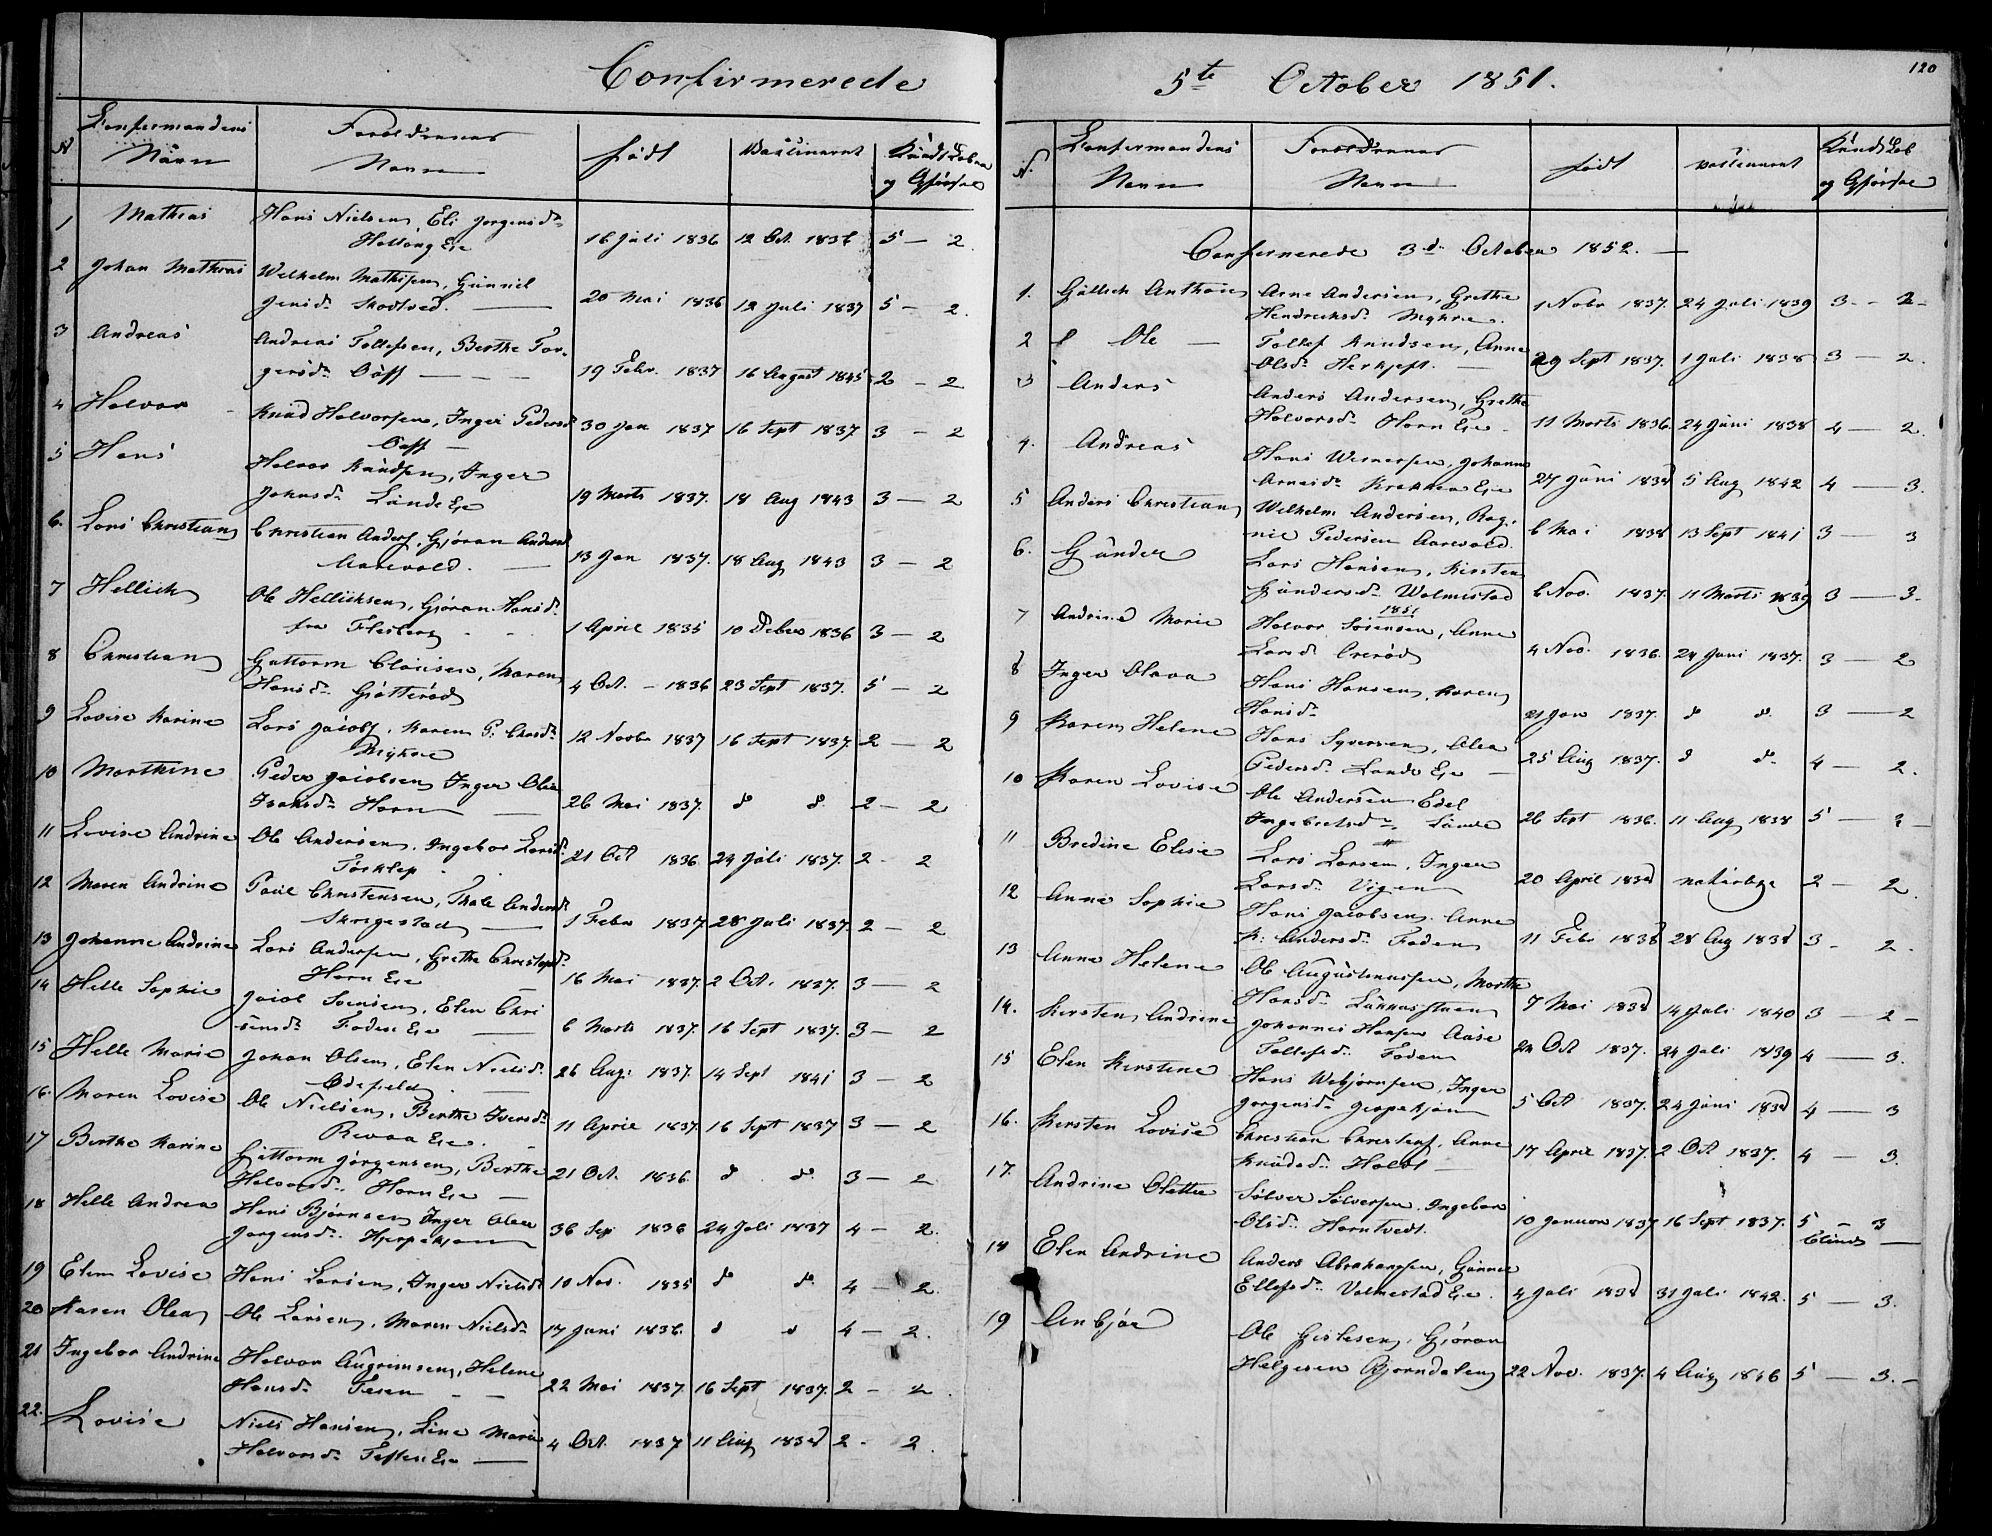 Confirmerede
N
Confirmandens Navn
Forældrenes Navn
født
Vaccineret
Kundskaber og Opførsel
1 Mathias Hans Nielsen, Eli Jorgensd.
Ee 16 Juli 1836 12 Oct. 1836 5 — 2.
2 Johan Mathias Wilhelm Mathisen, Gunnil
Jensd. Skodtved. 20 Mai 1836 12 Juli 1837 5 — 2.
3 Andreas Andreas Tollefsen, Berthe Tor-
gersd. 19 Febr. 1837 16 August 1845 2 — 2
4 Halvor Knud Halvorsen, Inger Pedersd
30 Jan 1837 16 Sept 1837 3 — 2
5 Hans Halvor Knudsen, Inger
Johnsd. Lunde Ee 19 Marts 1837. 18 Aug 1843 3 — 2
6. Lars Christian Christian Anders, Gjøran Andersd
Aarevold. 13 Jan 1837. 18 Aug 1843 3 — 2
7 Hellich Ole Hellichsen, Gjøran Hansd.
fra Flesberg 1 April 1835 10 Decbr 1836 3 — 2
8 Christian Guttorm Clausen, Maren
Hansd. Gjøtterød 4 Oct. — 1836 23 Sept 1837. 5 — 2
9 Lovise Karine Lars Jacobs, Karen P. d.
Myhre 12 Novbr 1837 16 Sept 1837. 2 — 2
10 Marthine Peder Jacobsen Inger Olea
Ivarsd. Horn 26 Mai 1837. d d. 2 — 2
11 Lovise Andrine Ole Andersen, Ingebor Larsd.
21 Oct 1836 24 Juli 1837. 2 — 2
12 Maren Andrine Poul Christensen, Thale Andersd
Skregestad 1 Febr 1837. 28 Juli 1837. 2 — 2
13 Johanne Andrine Lars Andersen, Grethe Christophd.
Horn Ee 16 Mai 1837. 2 Oct. 1837. 3 — 2
14 Helle Sophie Jacob Svensen, Elen Chri
stensd. Foden Ee 6 Marts 1837. 16 Sept 1837. 3 — 2
15 Helle Marie Johan Olsen, Elen Nielsd.
Odefjeld 26 Aug: 1837. 14 Sept 1841 3 — 2
16. Maren Lovise Ole Nielsen, Berthe Iversd.
Revaa Ee. 11 April 1837. 16 Sept 1837 3 — 2
17 Berthe Karine Guttorm Jørgensen, Berthe
Halvorsd. Horn Ee 21 Oct. 1836. d d. 3 — 2
18 Helle Andrea Hans Bjørnsen Inger Olea
Jorgensd. 36 Sep 1836 24 Juli 1837 4 — 2.
19 Elen Lovise Hans Larsen, Inger Nielsd. 10 Nov. 1835 d d. 4 — 2.
20 Karen Olea Ole Larsen, Maren Nielsd. 17 Juni 1836. d d 4 — 2.
21 Ingebor Andrine Halvor Augrimsen, Helene
Hansd. Tesen 22 Mai 1837. 16 Sept 1837. 2 — 2
22. Lovise Niels Hansen, Line Marie
Halvorsd. Ee 4 Oct. 1837 11 Aug 1838 2 — 2.
5te October 1851.
120
N.
Confirmandens Navn
Forældrenes Navn
født
vaccineret
Kundskab og Opførsel
Confirmerede 3d. October 1852. —
1. Gullich Anthon Arne Andersen, Grethe
Hendriksd. Myhre. 1 Novbr 1837. 24 Juli 1839 3 — 2 —
2 Ole Tollef Knudsen, Anne
Olsd. 29 Sept 1837. 1 Juli 1838 3 — 2.
3 Anders Anders Andersen, Grethe
Halvorsd. Horn Ee. 11 Marts 1836. 24 Juni 1838 4 — 2.
4. Andreas Hans Wernersen, Johanne
Arnesd. Krekken Ee 27 Juni 1838 5 Aug 1842 4 — 3.
5 Anders Christian Wilhelm Andersen, Rag-
nil Pedersen Aarevold. 6 Mai 1838 13 Sept 1841 3 — 3
6. Gunder Lars Hansen, Kirsten
Gundersd. Wolmestad 6 Nov. 1837. 11 Marts 1839 3 — 3.
1851
7 Andrine Marie Halvor Sørensen, Anne
Larsd. 4 Nov. 1836. 28 Juni 1837. 3 — 2
8 Inger Olava Hans Hansen, Karen
Hansd. 21 Jan 1837. d d. 3 — 2
9 Karen Helene Hans Syversen, Olea
Pedersd. Lande Ee 25 Aug 1837. d d. 4 — 2.
10 Karen Lovise Ole Andersen Edel
Ingebretsd. Lunde 26 Sept 1836. 11 Aug 1838 5 — 2 —
11 Bredine Elise Lars Larsen, Inger
Larsd. Vigen 20 April 1838 naturlige 2 — 2.
12 Anne Sophie Hans Jacobsen, Anne
K: Andersd. Foden 11 Febr 1838 28 Aug 1838 3 — 2.
13 Anne Helene Ole Augustinussen, Marthe
Hansd. 7 Mai 1838 14 Juli 1840 3 — 2 —
14. Kirsten Andrine Johannes Hansen Aase
Tollefsd. Foden 22 Oct 1837. 24 Juli 1839 4 — 3.
15 Elen Kirstine Hans Webjørnsen, Inger
Jorgensd. 5 Oct 1837. 24 Juni 1838 4 — 3
16. Kirsten Lovise Christian Christens, Anne
Knudsd. Holdt 17 April 1837. 2 Oct 1837. 4 — 3.
17. Andrine Olette Sølver Sølversen, Ingebor
Olsd. Horntvedt. 10 Januar 1837 16 Sept 1837. 5 — 3
blind —
18 Elen Andrine Anders Abrahamsen, Gunnil
Ellefsd. Volmestad Ee. 4 Juli 1838 31 Juli 1842. 5 — 3.
19 Anbjør Ole Gislesen, Gjøran
Helgesen Bjørndalen 22 Nov. 1837. 4 Aug 1846 5 — 3. —